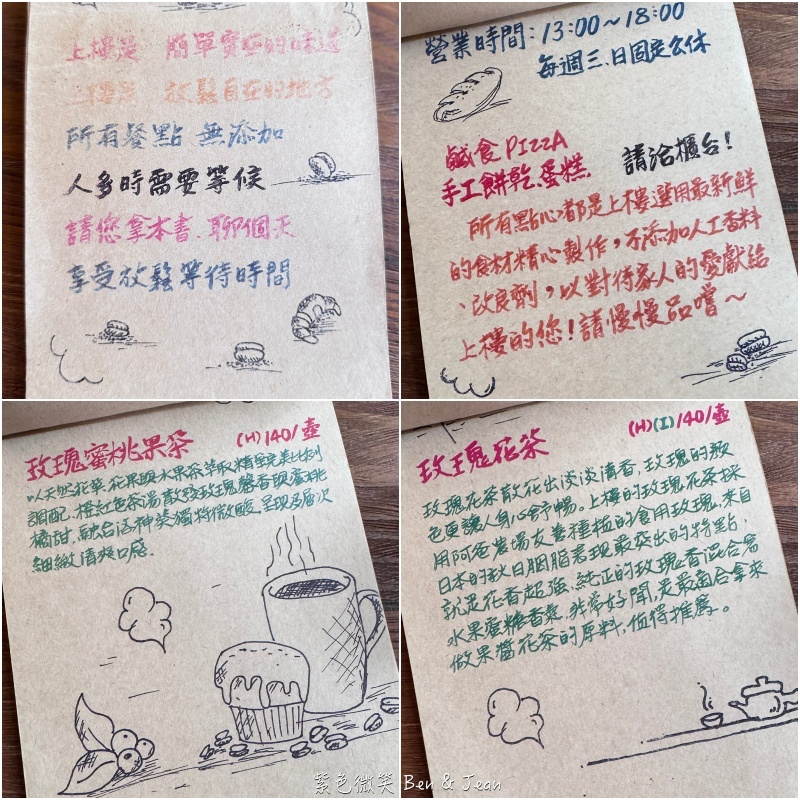 上樓是 簡單實在的味道
二樓是 放鬆自在的地方
所有餐點 無添加
人多時需要等候
請您拿本書、聊個天
享受放鬆等待時間
營業時間:13:00~18:00
每週三、日固定公休
鹹食PIZZA
手工餅乾、蛋糕
請洽櫃台!
所有點心都是上樓選用最新鮮
的食材精心製作,不添加人工香料
、改良劑,以對待家人的愛獻給
上樓的您!請慢慢品嚐~
玫瑰蜜桃果茶 (H)140/壺
以天然花草、花果與水果茶萃取精華完美比例
調配。橙紅色茶湯散發玫瑰馨香與蜜桃
橘甜,融合洛神葵獨特微酸,呈現多層次
細緻清爽口感.
玫瑰花茶 (H)(I)140/壺
玫瑰花茶散花出淡淡清香,玫瑰的顏
色更讓人身心舒暢。上樓的玫瑰花茶採
用阿爸農場友善種植的食用玫瑰,來自
日本的秋日胭脂表現最突出的特點,
就是花香超強、純正的玫瑰香混合著
水果蜜糖香氣,非常好聞,是最適合拿來
做果醬花茶的原料,值得推薦。
紫色微笑 Ben & Jean